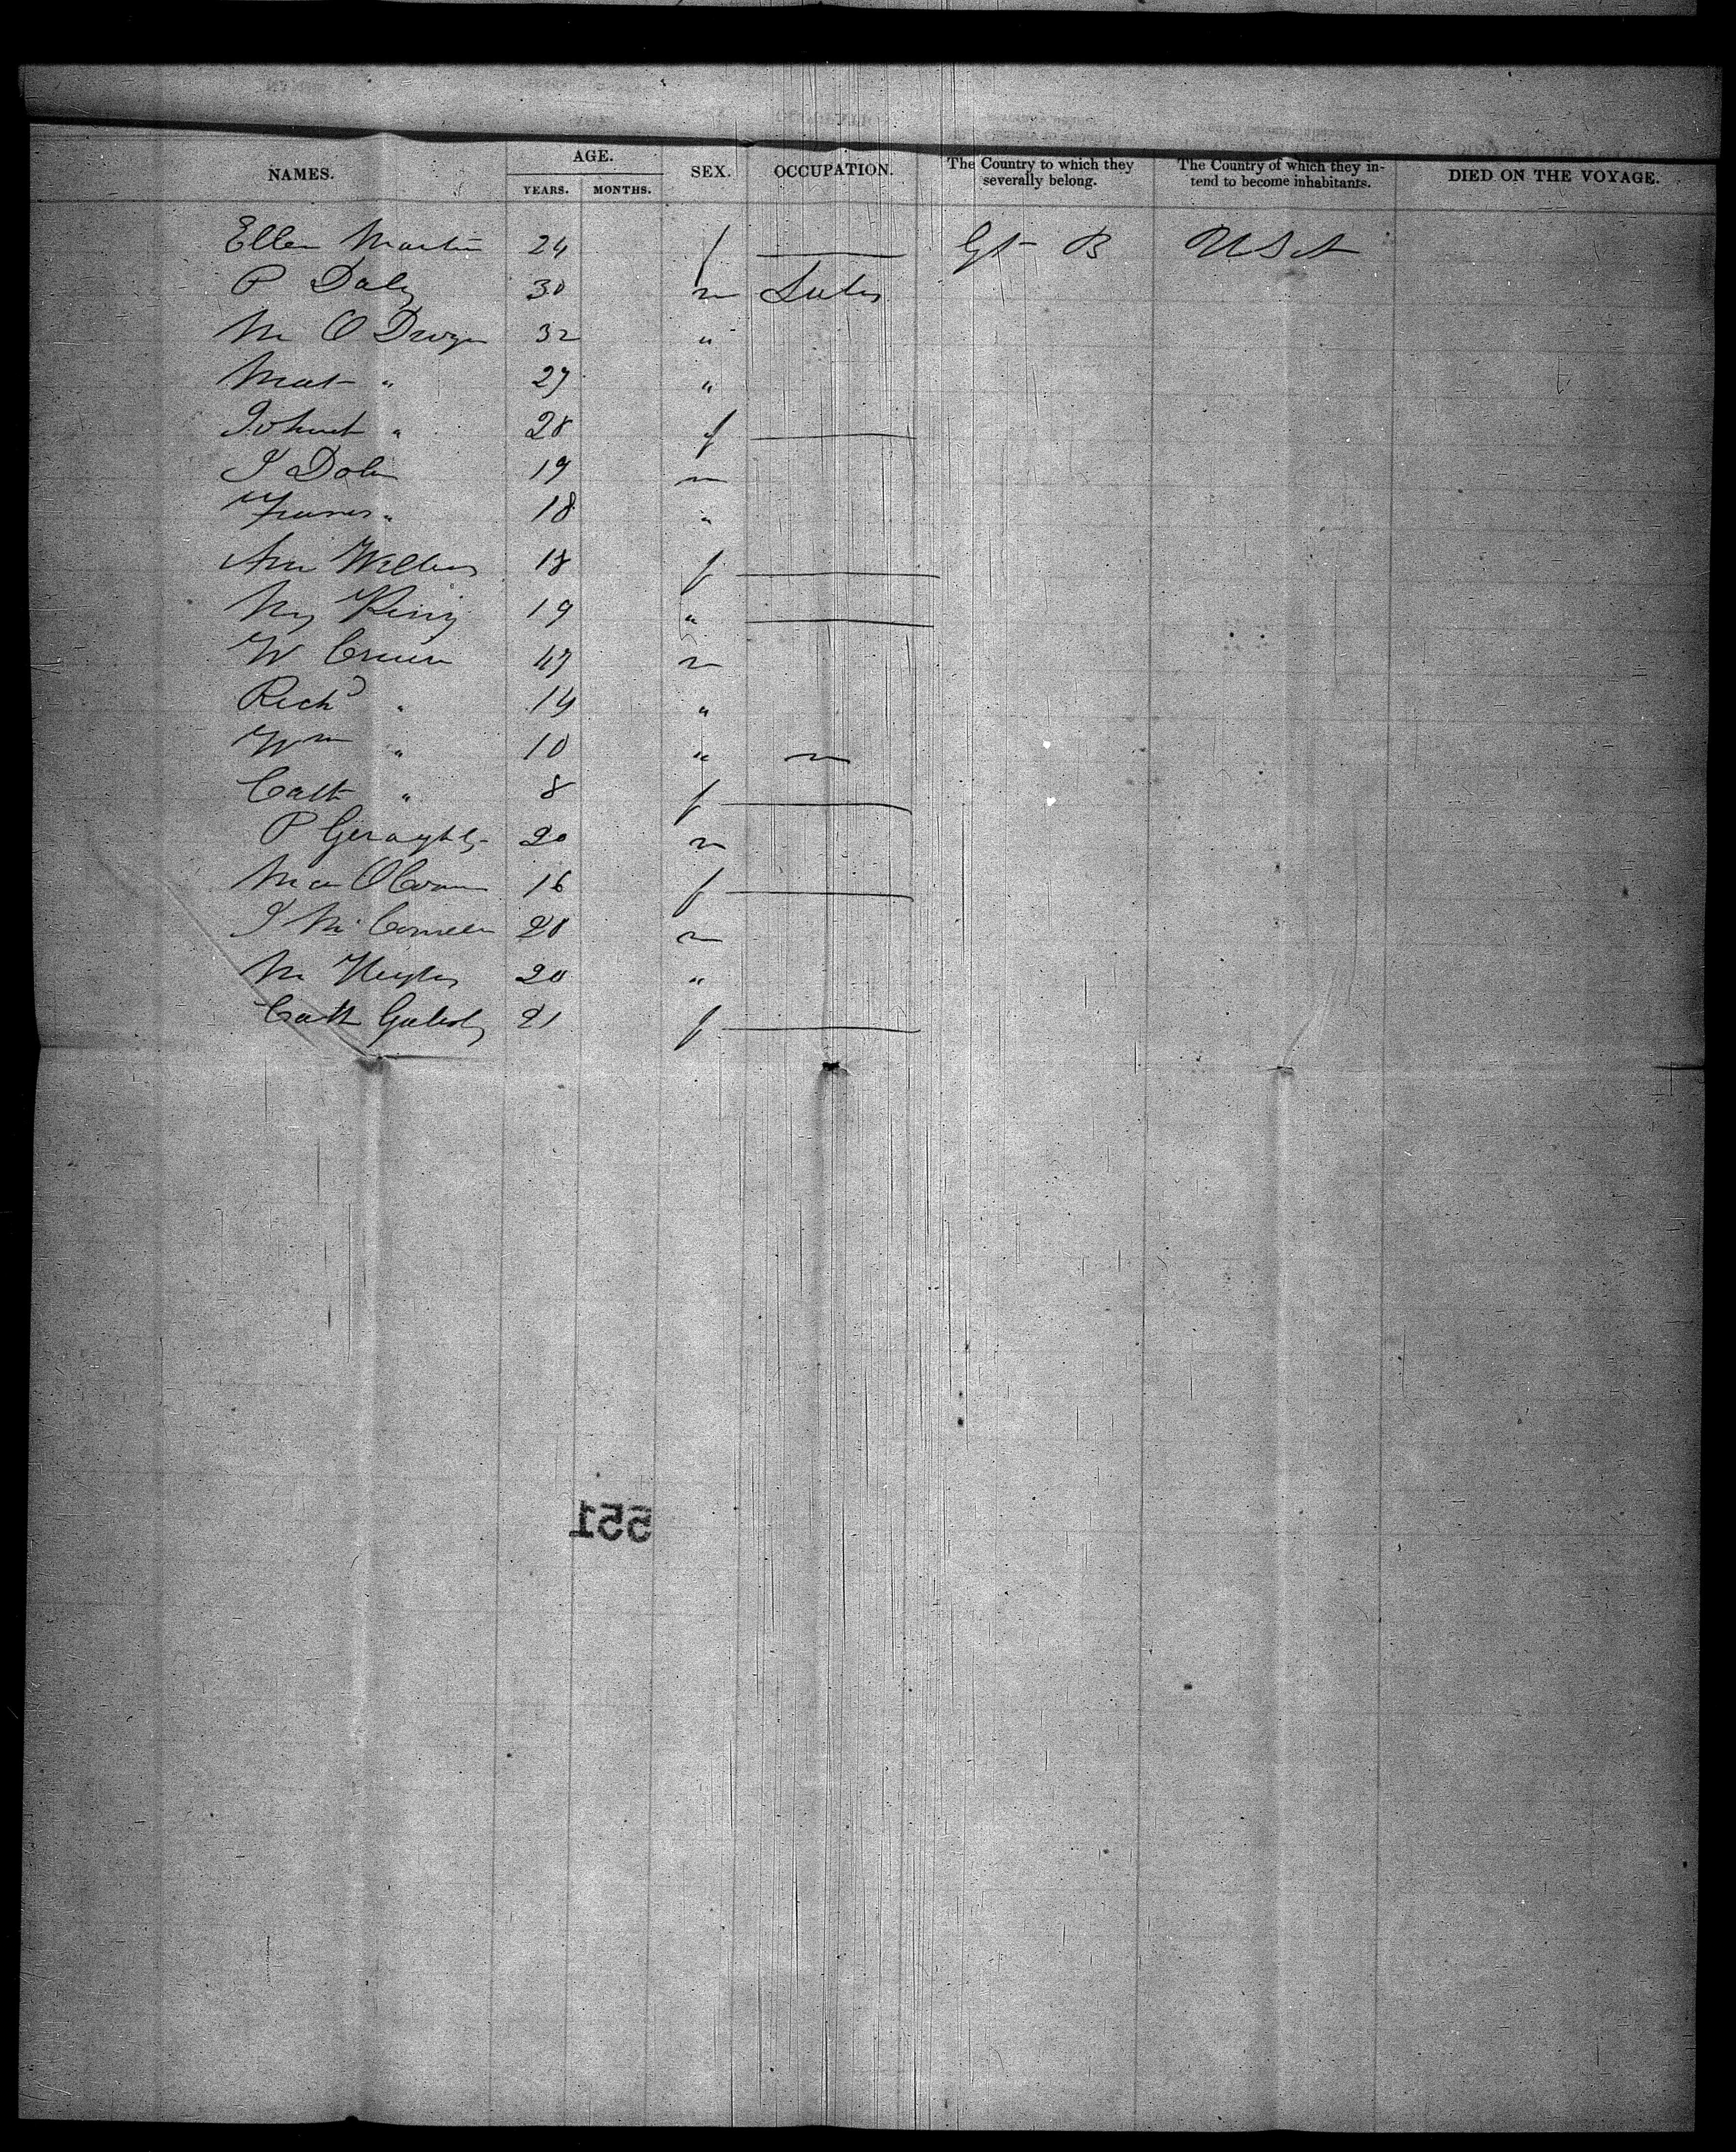 NAMES. AGE. SEX. OCCUPATION. The Country to which they severally belong. The Country of which they intend to become inhabitants. DIED ON THE VOYAGE.
YEARS. MONTHS.
Ellen Martin 24 f Gt B USA
P Daly 30 m
M O Dwyer 32 "
Mat " 27 "
Johant " 28 f
J Dolan 19 m
" 18 "
Ann 18 f
My King 19 "
W 47 m
Richd " 14 "
Wm " 10 "
Cath " 8 f
P Geraghty 20 m
16 f
J 20 m
M 20 "
Cath 21 f
551